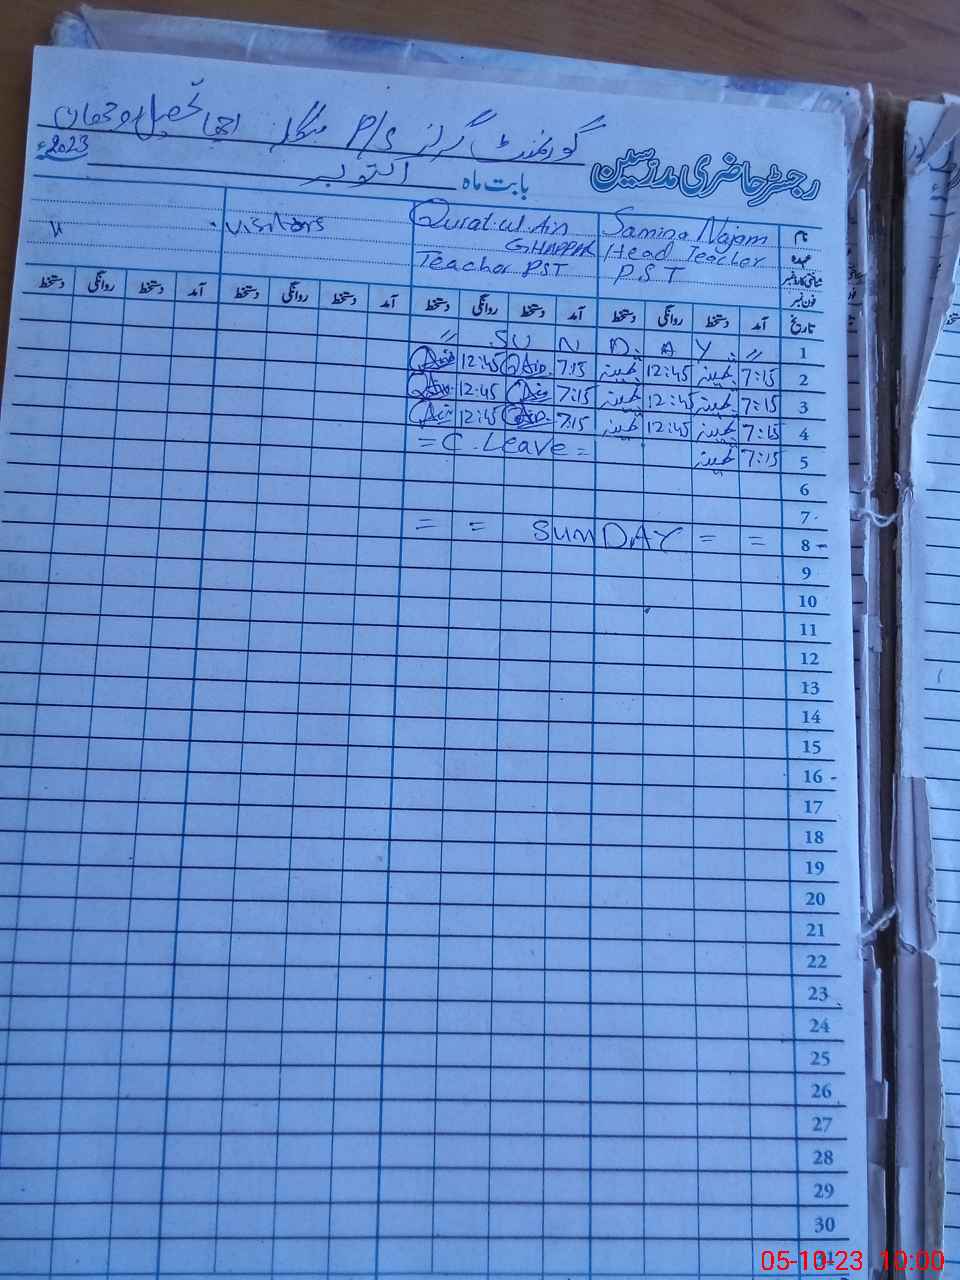 گورنمنٹ گرلز P/S
رجسٹر حاضری مدرسین
2023ء
بابت ماہ اکتوبر
نام Samina Najam Qurat-ul-Ain visitors "
عہدہ Head Teacher GHAFFAR
شناختی کارڈ نمبر P.S.T Teacher PST
فون نمبر
تاریخ آمد دستخط روانگی دستخط آمد دستخط روانگی دستخط آمد دستخط روانگی دستخط آمد دستخط روانگی دستخط
1 " S U N D A Y "
2 7:15 12:45 7:15 Ain 12:45 Ain
3 7:15 12:45 7:15 Ain 12:45 Ain
4 7:15 12:45 7:15 Ain 12:45 Ain
5 7:15 = C. Leave =
6
7
8 = = SUNDAY = =
9
10
11
12
13
14
15
16
17
18
19
20
21
22
23
24
25
26
27
28
29
30
31
05-10-23 10:00